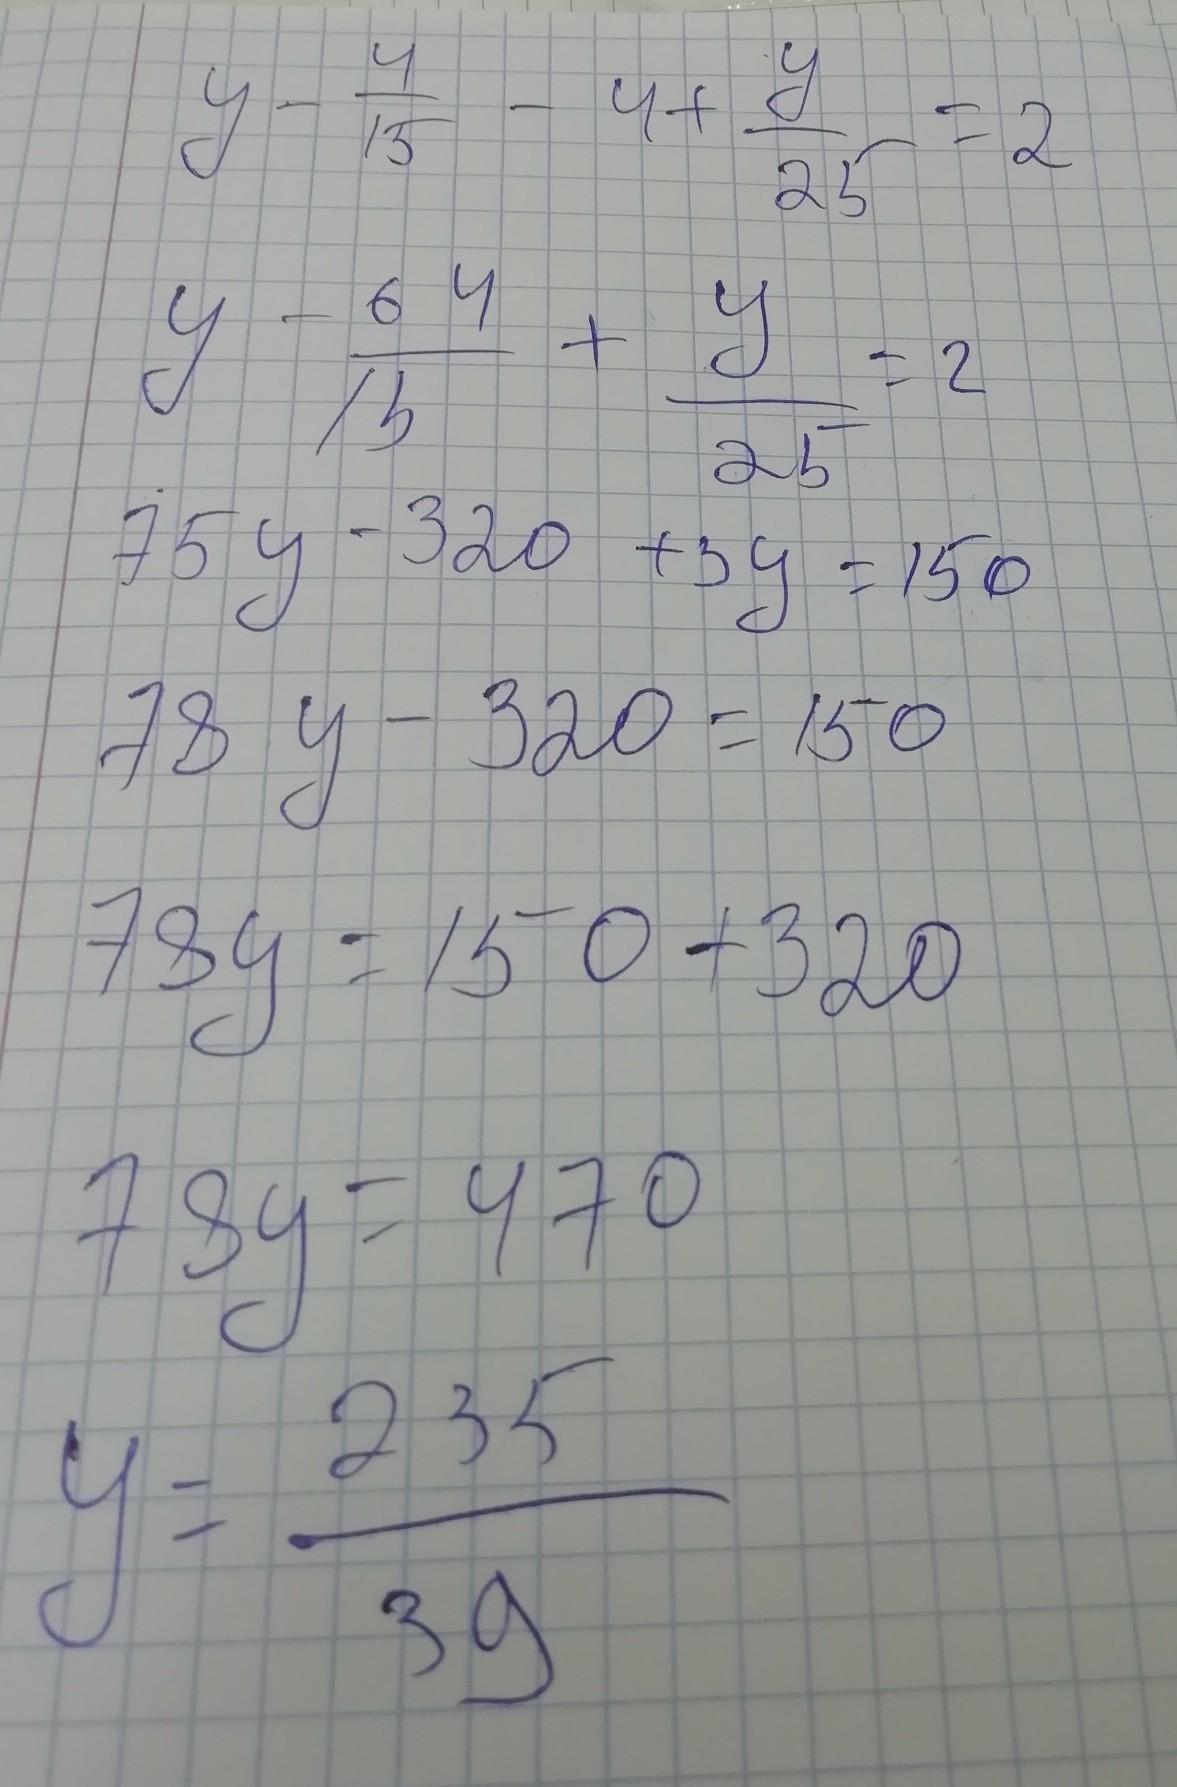 y - 4/15 - 4 + y/25 = 2
y - 64/15 + y/25 = 2
75y - 320 + 3y = 150
78y - 320 = 150
78y = 150 + 320
78y = 470
y = 235/39